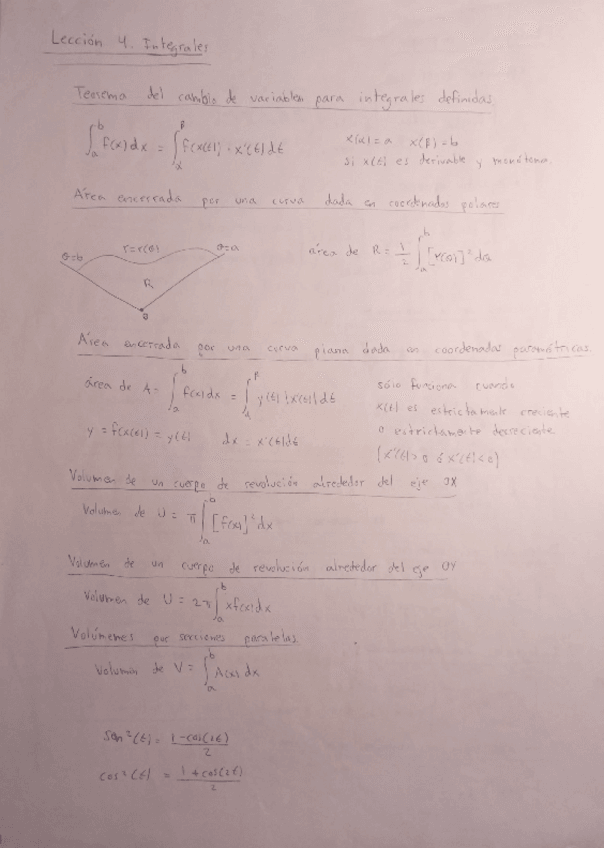 Lección 4. Integrales
Teorema del cambio de variables para integrales definidas
∫_a^b f(x)dx = ∫_α^β f(x(t)) · x'(t)dt
x(α)=a x(β)=b
si x(t) es derivable y monótona.
Área encerrada por una curva dada en coordenadas polares
θ=b r=r(θ) θ=a
R
0
área de R = 1/2 ∫_a^b [r(θ)]² dθ
Área encerrada por una curva plana dada en coordenadas paramétricas.
área de A = ∫_a^b f(x)dx = ∫_α^β y(t)|x'(t)|dt
y = f(x(t)) = y(t) dx = x'(t)dt
sólo funciona cuando
x(t) es estrictamente creciente
o estrictamente decreciente
(x'(t)>0 ó x'(t)<0)
Volumen de un cuerpo de revolución alrededor del eje OX
Volumen de U = π∫_a^b [f(x)]² dx
Volumen de un cuerpo de revolución alrededor del eje OY
Volumen de U = 2π∫_a^b xf(x)dx
Volúmenes por secciones paralelas
Volumen de V = ∫_a^b A(x)dx
sen²(t) = (1-cos(2t))/2
cos²(t) = (1+cos(2t))/2